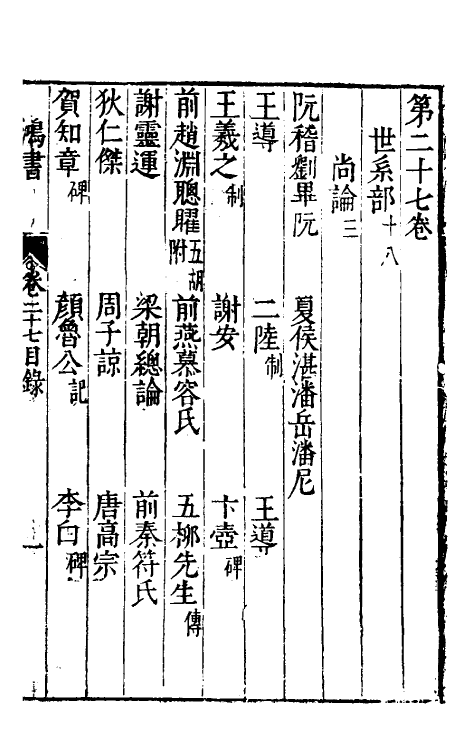 第二十七卷
世系部十八
尚論三
阮嵇劉畢阮　夏侯湛潘岳潘尼
王導　二陸制　王導
王羲之制　謝安　卞壺碑
前趙淵聰曜五胡附　前燕慕容氏　五柳先生傳
謝靈運　梁朝總論　前秦符氏
狄仁傑　周子諒　唐高宗
賀知章碑　顏魯公記　李白碑
鴻書　卷二十七目錄　一